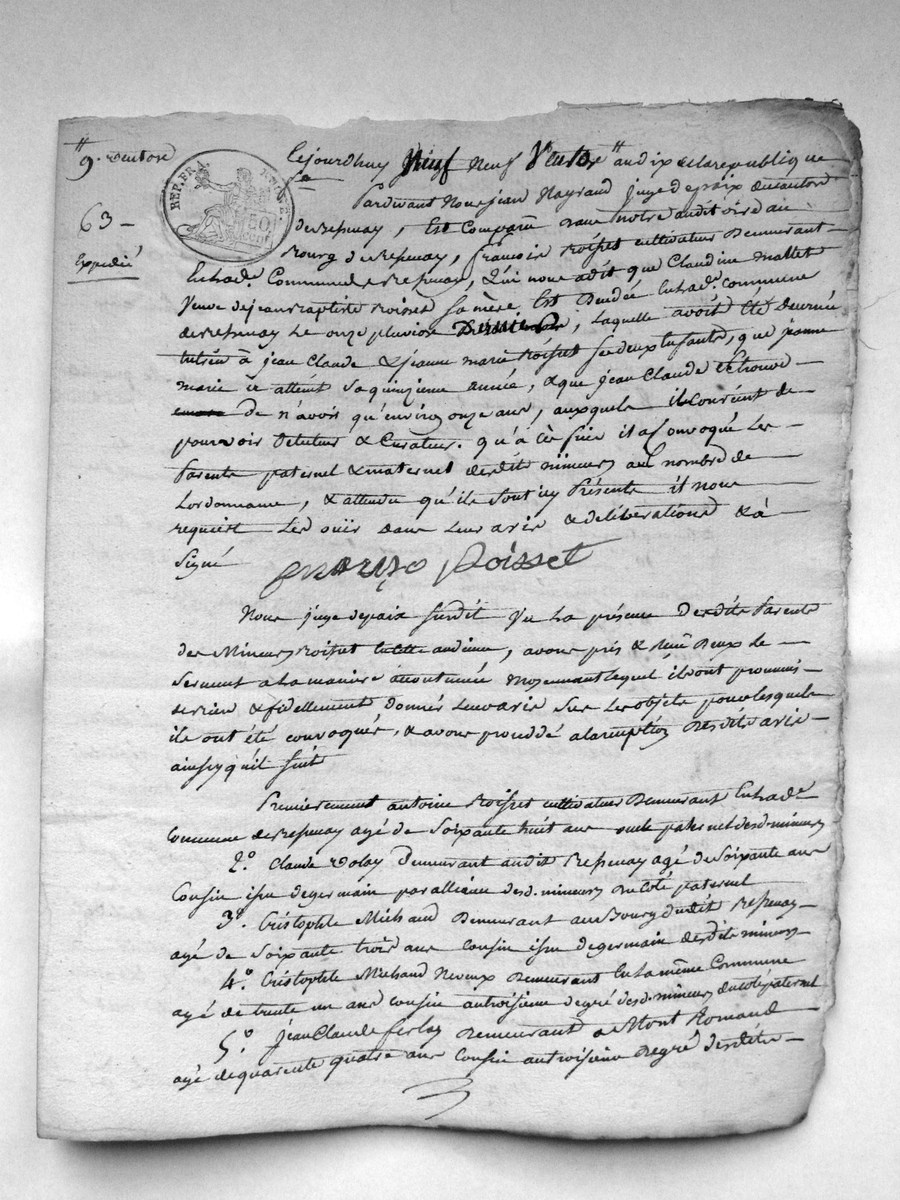 9. ventose
Cejourdhuy Neuf neuf Ventose an dix de la republique
Pardevant Nous jean Mayraud juge de paix du canton
REP. FRA.
50 cent.
63 -
de Respenay, Est Comparu dans notre auditoire au
Expedié
Bourg de Respenay, francois Roisset cultivateur Demeurant
En lad.e Commune de Respenay, Qui nous a dit que Claudine Mallet
Veuve de jean Baptiste Roisset sa mère Est Decedée En lad.e commune
de Respenay Le onze pluviose Dernier, laquelle avoit été Decernée
tutrice à jean Claude & jeanne marie Roisset ses deux Enfants, que jeanne
marie a atteint sa quinzieme année, & que jean Claude se trouve
de n'avoir qu'environ onze ans, auxquels il convient de
pourvoir De tuteur & Curateur. qu'à cette fin il a convoqué Les
Parents paternel & maternel desdits mineurs au nombre de
Lordonnance, & attendu qu'ils sont icy Présents il nous
requiert Les ouir dans Leur avis & deliberations & a
Signé
francois Roisset
Nous juge de paix susdit Vu La présence Desdits Parents
des Mineurs Roisset audience, avons pris & Reçu Deux le
Serment a la maniere accoutumée moyennant lequel ils ont promis
de bien & fidellement Donner Leur avis sur les objets pour lesquels
ils ont été convoqués, & avons procédé a la reception desdits avis
ainsy qu'il suit
Premierement antoine Roisset cultivateur Demeurant En lad.e
Commune de Respenay agé de Soixante huit ans oncle paternel desd. mineurs
2.o Claude Volay Demeurant audit Respenay agé de Soixante ans
Cousin issu de germain par alliance desd. mineurs du coté paternel
3.o Cristophle Michaud Demeurant au Bourg dudit Respenay
agé de Soixante trois ans cousin issu de germain desdits mineurs
4.o Cristophle Michaud Neveux Demeurant En la même Commune
agé de trente un ans cousin au troisieme degré desd. mineurs du coté paternel
5.o Jean Claude ferlay Demeurant a Mont Romand
agé de quarente quatre ans Cousin au troisieme Degré desdits